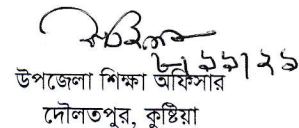 ৮/১১/২১
উপজেলা শিক্ষা অফিসার
দৌলতপুর, কুষ্টিয়া